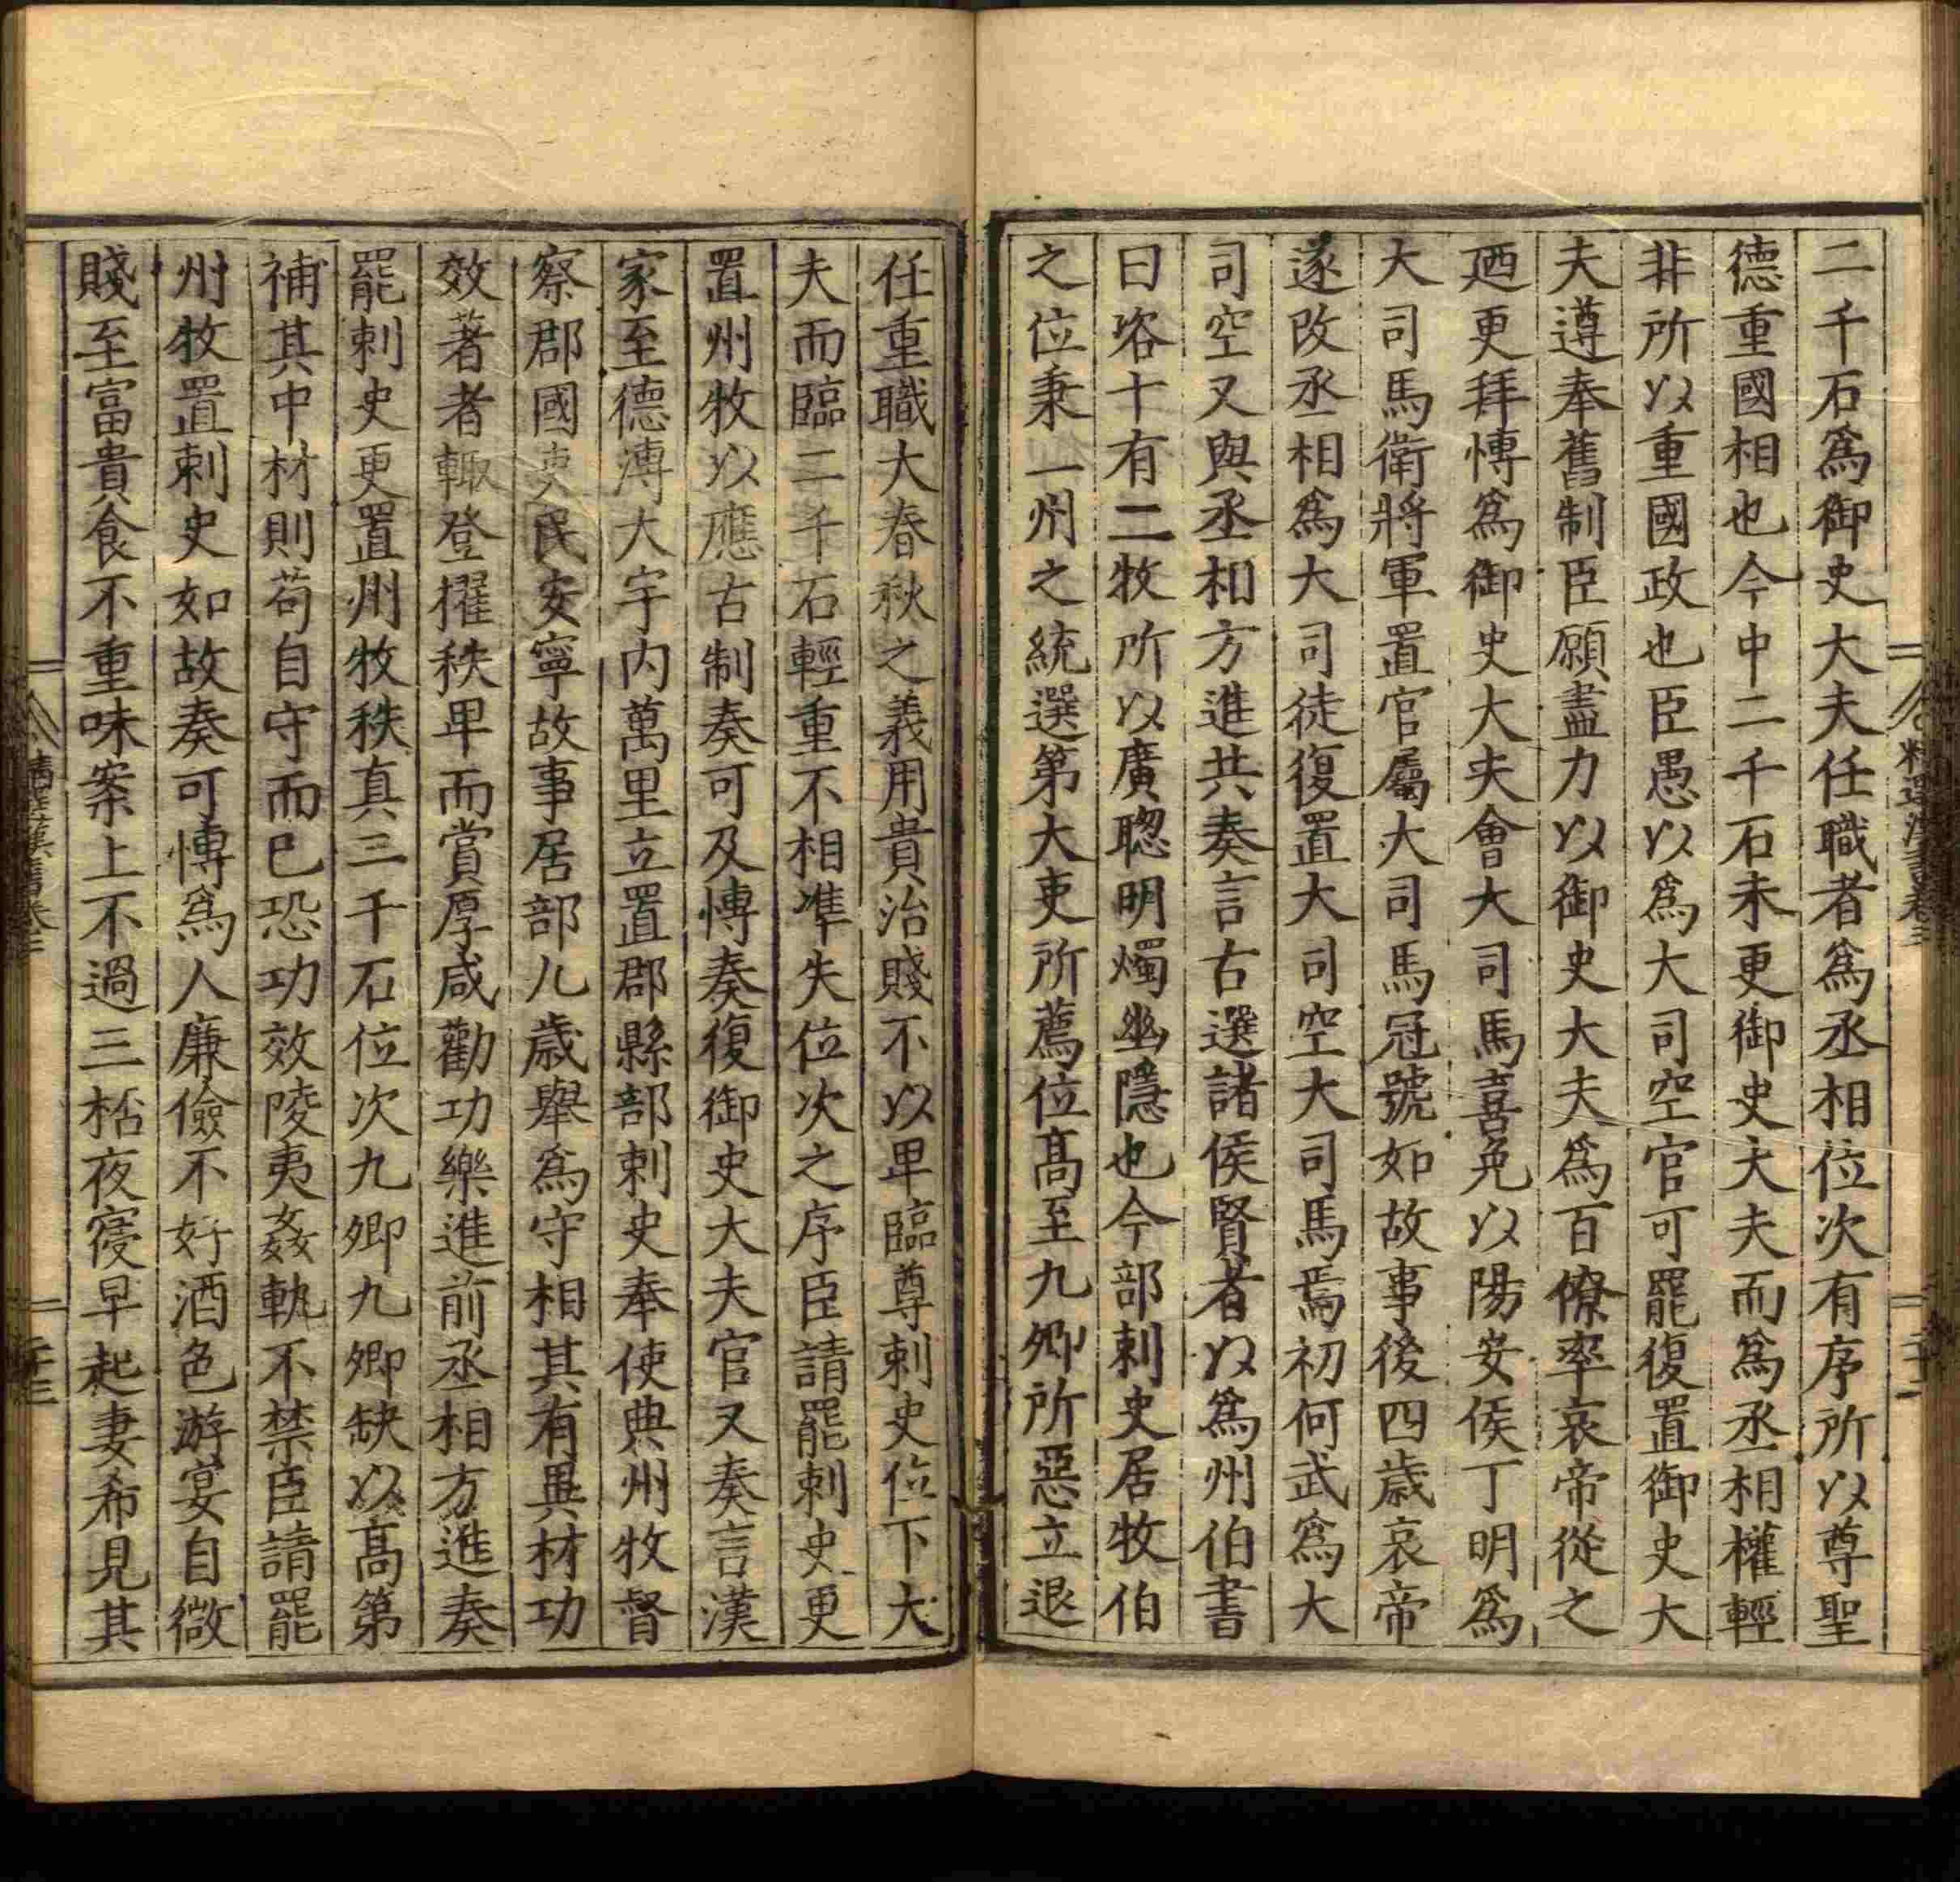 二千石爲御史大夫任職者爲丞相位次有序所以尊聖
德重國相也今中二千石未更御史大夫而爲丞相權輕
非所以重國政也臣愚以爲大司空官可罷復置御史大
夫遵奉舊制臣願盡力以御史大夫爲百僚率哀帝從之
廼更拜愽爲御史大夫會大司馬喜免以陽安侯丁明爲
大司馬衛將軍置官屬大司馬冠號如故事後四歲哀帝
遂改丞相爲大司徒復置大司空大司馬焉初何武爲大
司空又與丞相方進共奏言古選諸侯賢者以爲州伯書
曰咨十有二牧所以廣聦明燭幽隱也今部刺史居牧伯
之位秉一州之統選第大吏所薦位高至九卿所惡立退
任重職大春秋之義用貴治賤不以卑臨尊刺史位下大
夫而臨二千石輕重不相準失位次之序臣請罷刺史更
置州牧以應古制奏可及愽奏復御史大夫官又奏言漢
家至德溥大宇内萬里立置郡縣部刺史奉使典州牧督
察郡國吏民安寧故事居部九歲舉爲守相其有異材功
效著者輙登擢秩卑而賞厚咸勸功樂進前丞相方進奏
罷刺史更置州牧秩真二千石位次九卿九卿缺以高第
補其中材則苟自守而已恐功效陵夷姦軌不禁臣請罷
州牧置刺史如故奏可愽爲人廉儉不好酒色游宴自微
賤至富貴食不重味案上不過三桮夜寑早起妻希見其